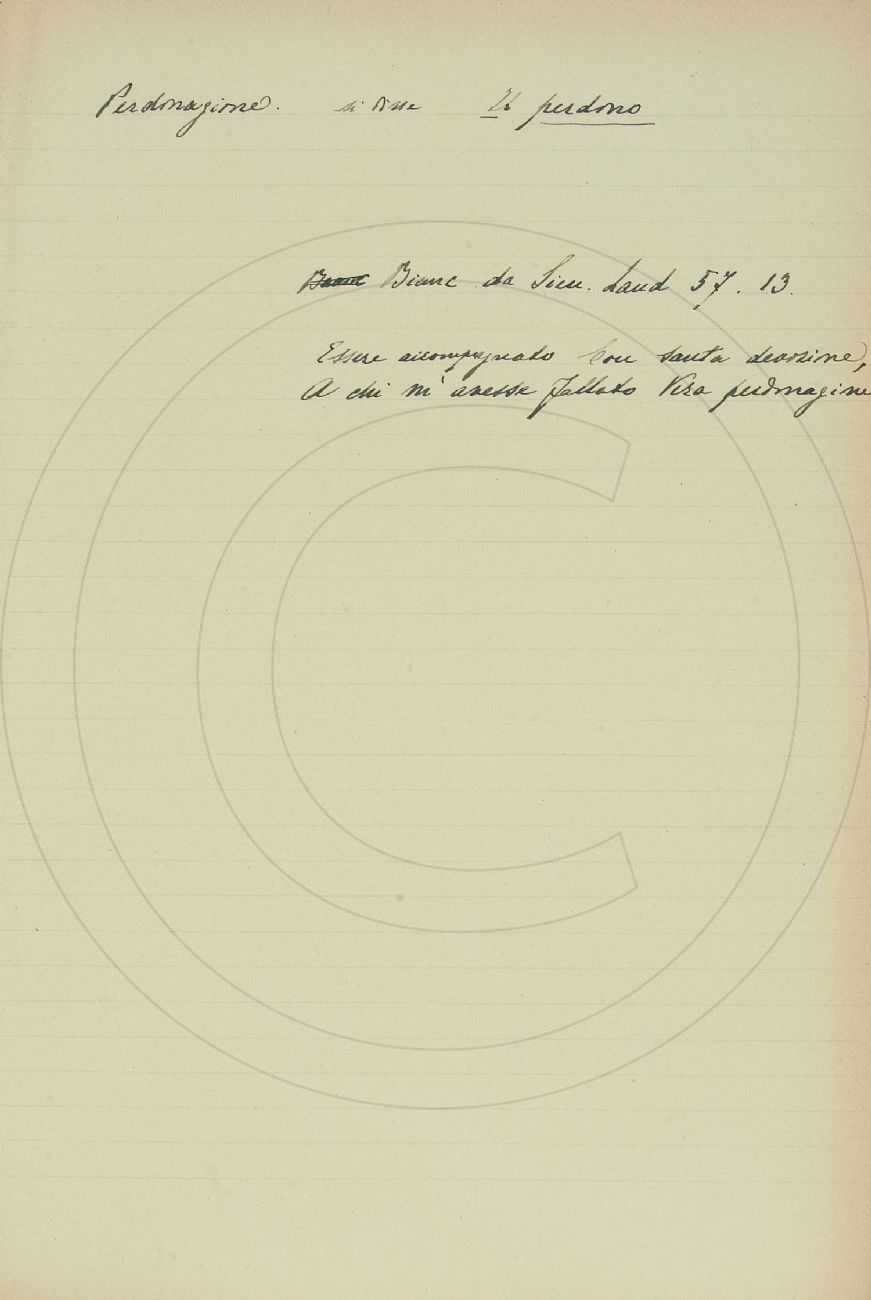 Perdonagione. si disse Il perdono
Bianc da Sien. Laud 57. 13.
Essere accompagnato Con santa devozione,
A chi m' avesse fallato Vera perdonagione